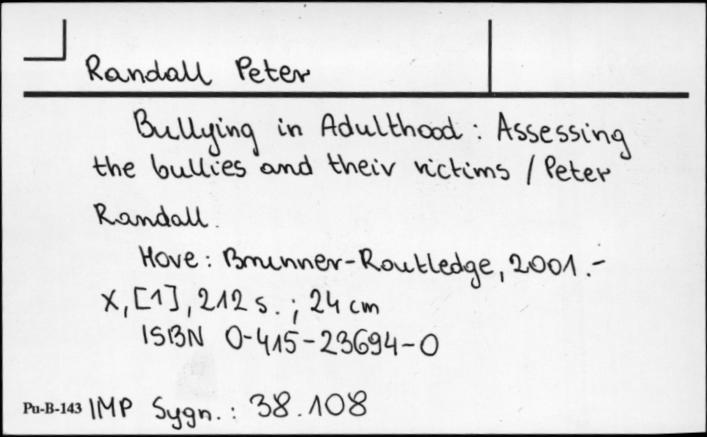 Randall Peter
Bullying in Adulthood : Assessing
the bullies and their victims / Peter
Randall.
Hove : Brunner-Routledge, 2001.-
X, [1], 212 s. ; 24 cm
ISBN 0-415-23694-0
Pu-B-143 IMP Sygn. : 38.108